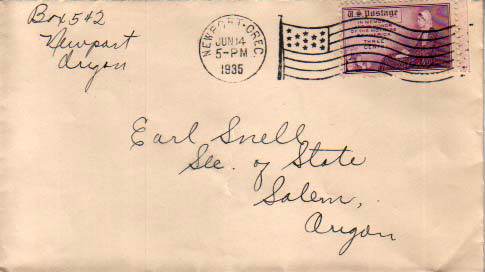 Box 542
Newport
Oregon
NEWPORT OREG.
JUN 14
5-PM
1935
U S Postage
IN MEMORY
OF THE MOTHERS
THREE
CENTS
Earl Snell
Sec. of State
Salem,
Oregon